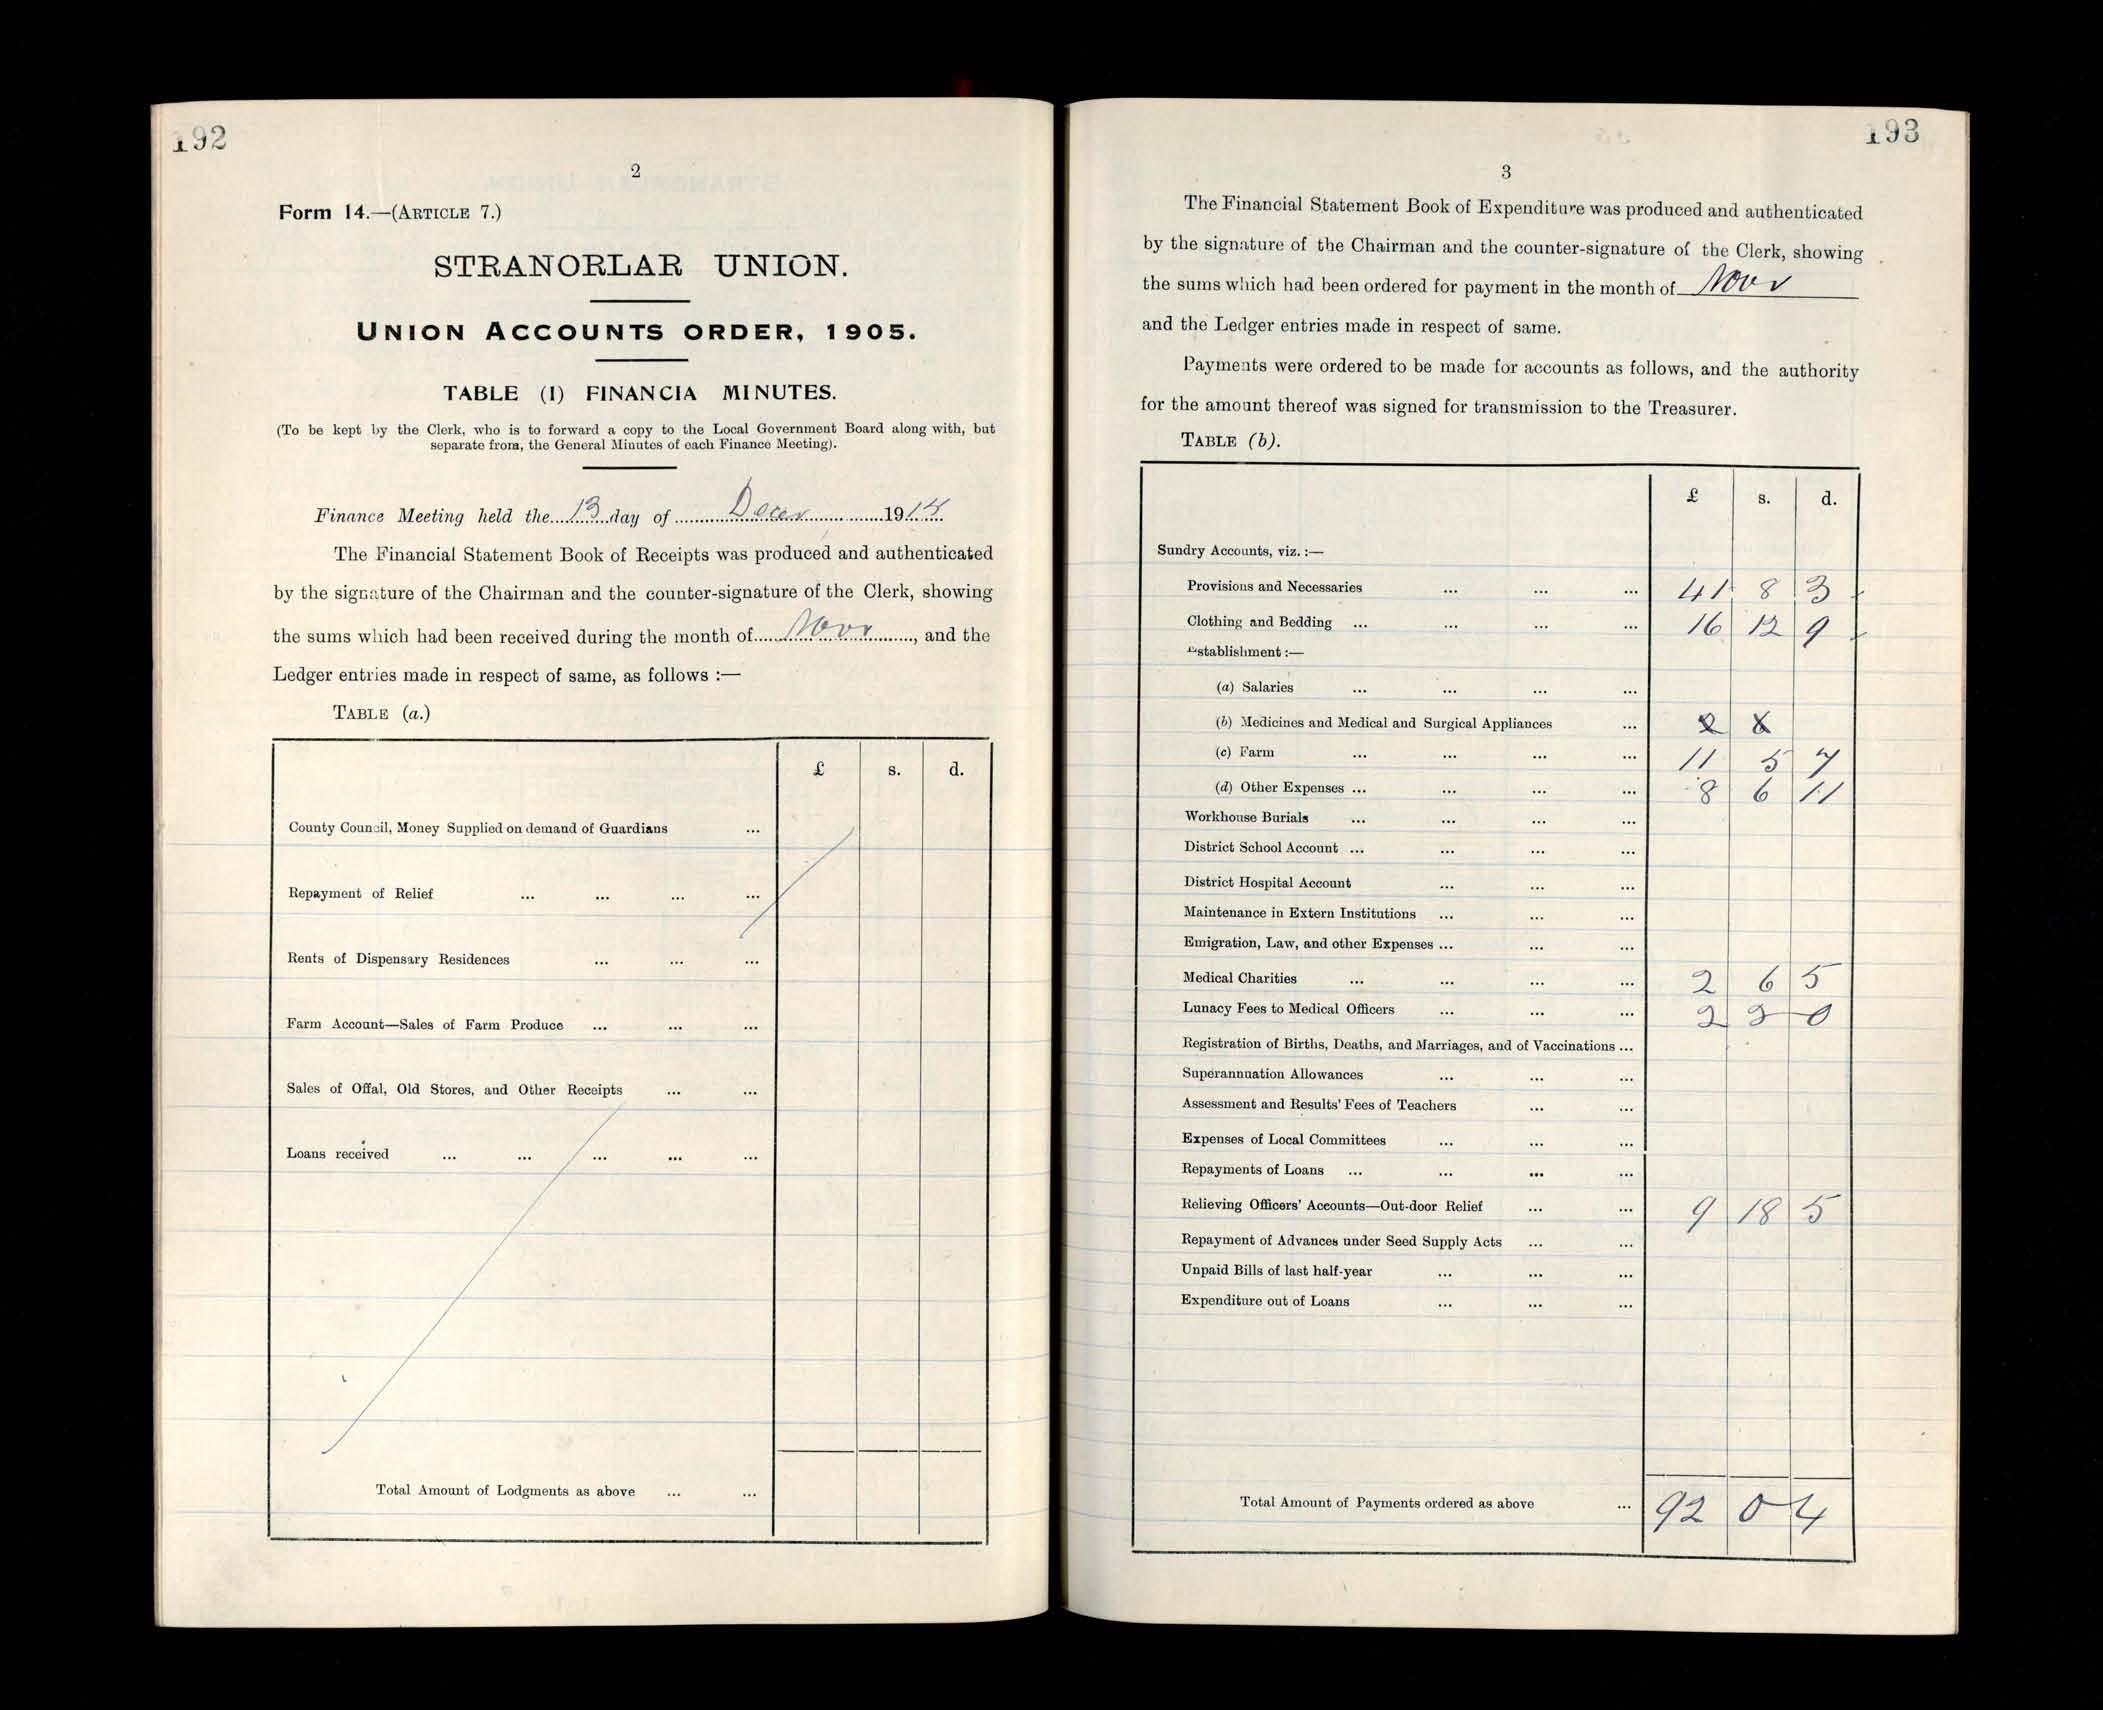 192
2
Form 14.—(ARTICLE 7.)
STRANORLAR UNION.
UNION ACCOUNTS ORDER, 1905.
TABLE (1) FINANCIA MINUTES.
(To be kept by the Clerk, who is to forward a copy to the Local Government Board along with, but
separate from, the General Minutes of each Finance Meeting).
Finance Meeting held the 13 day of Decer 1915
The Financial Statement Book of Receipts was produced and authenticated
by the signature of the Chairman and the counter-signature of the Clerk, showing
the sums which had been received during the month of Novr, and the
Ledger entries made in respect of same, as follows :—
TABLE (a.)
£ s. d.
County Council, Money Supplied on demand of Guardians ...
Repayment of Relief ... ... ... ...
Rents of Dispensary Residences ... ... ...
Farm Account—Sales of Farm Produce ... ... ...
Sales of Offal, Old Stores, and Other Receipts ... ...
Loans received ... ... ... ... ...
Total Amount of Lodgments as above ... ...
193
3
The Financial Statement Book of Expenditure was produced and authenticated
by the signature of the Chairman and the counter-signature of the Clerk, showing
the sums which had been ordered for payment in the month of Novr
and the Ledger entries made in respect of same.
Payments were ordered to be made for accounts as follows, and the authority
for the amount thereof was signed for transmission to the Treasurer.
TABLE (b).
£ s. d.
Sundry Accounts, viz. :—
Provisions and Necessaries ... ... ... 41 8 3
Clothing and Bedding ... ... ... ... 16 12 9
Establishment :—
(a) Salaries ... ... ... ...
(b) Medicines and Medical and Surgical Appliances ...
(c) Farm ... ... ... ... 11 5 7
(d) Other Expenses ... ... ... ... 8 6 11
Workhouse Burials ... ... ... ...
District School Account ... ... ... ...
District Hospital Account ... ... ...
Maintenance in Extern Institutions ... ... ...
Emigration, Law, and other Expenses ... ... ...
Medical Charities ... ... ... ... 2 6 5
Lunacy Fees to Medical Officers ... ... ... 2 2 0
Registration of Births, Deaths, and Marriages, and of Vaccinations ...
Superannuation Allowances ... ... ...
Assessment and Results' Fees of Teachers ... ...
Expenses of Local Committees ... ... ...
Repayments of Loans ... ... ... ...
Relieving Officers' Accounts—Out-door Relief ... ... 9 18 5
Repayment of Advances under Seed Supply Acts ... ...
Unpaid Bills of last half-year ... ... ...
Expenditure out of Loans ... ... ...
Total Amount of Payments ordered as above ... 92 0 4